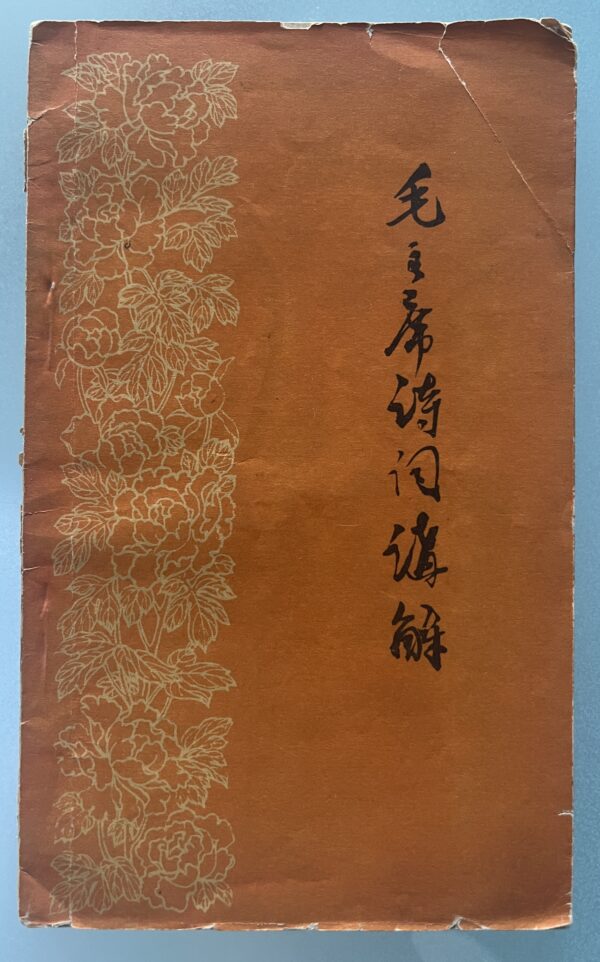 毛主席诗词講解